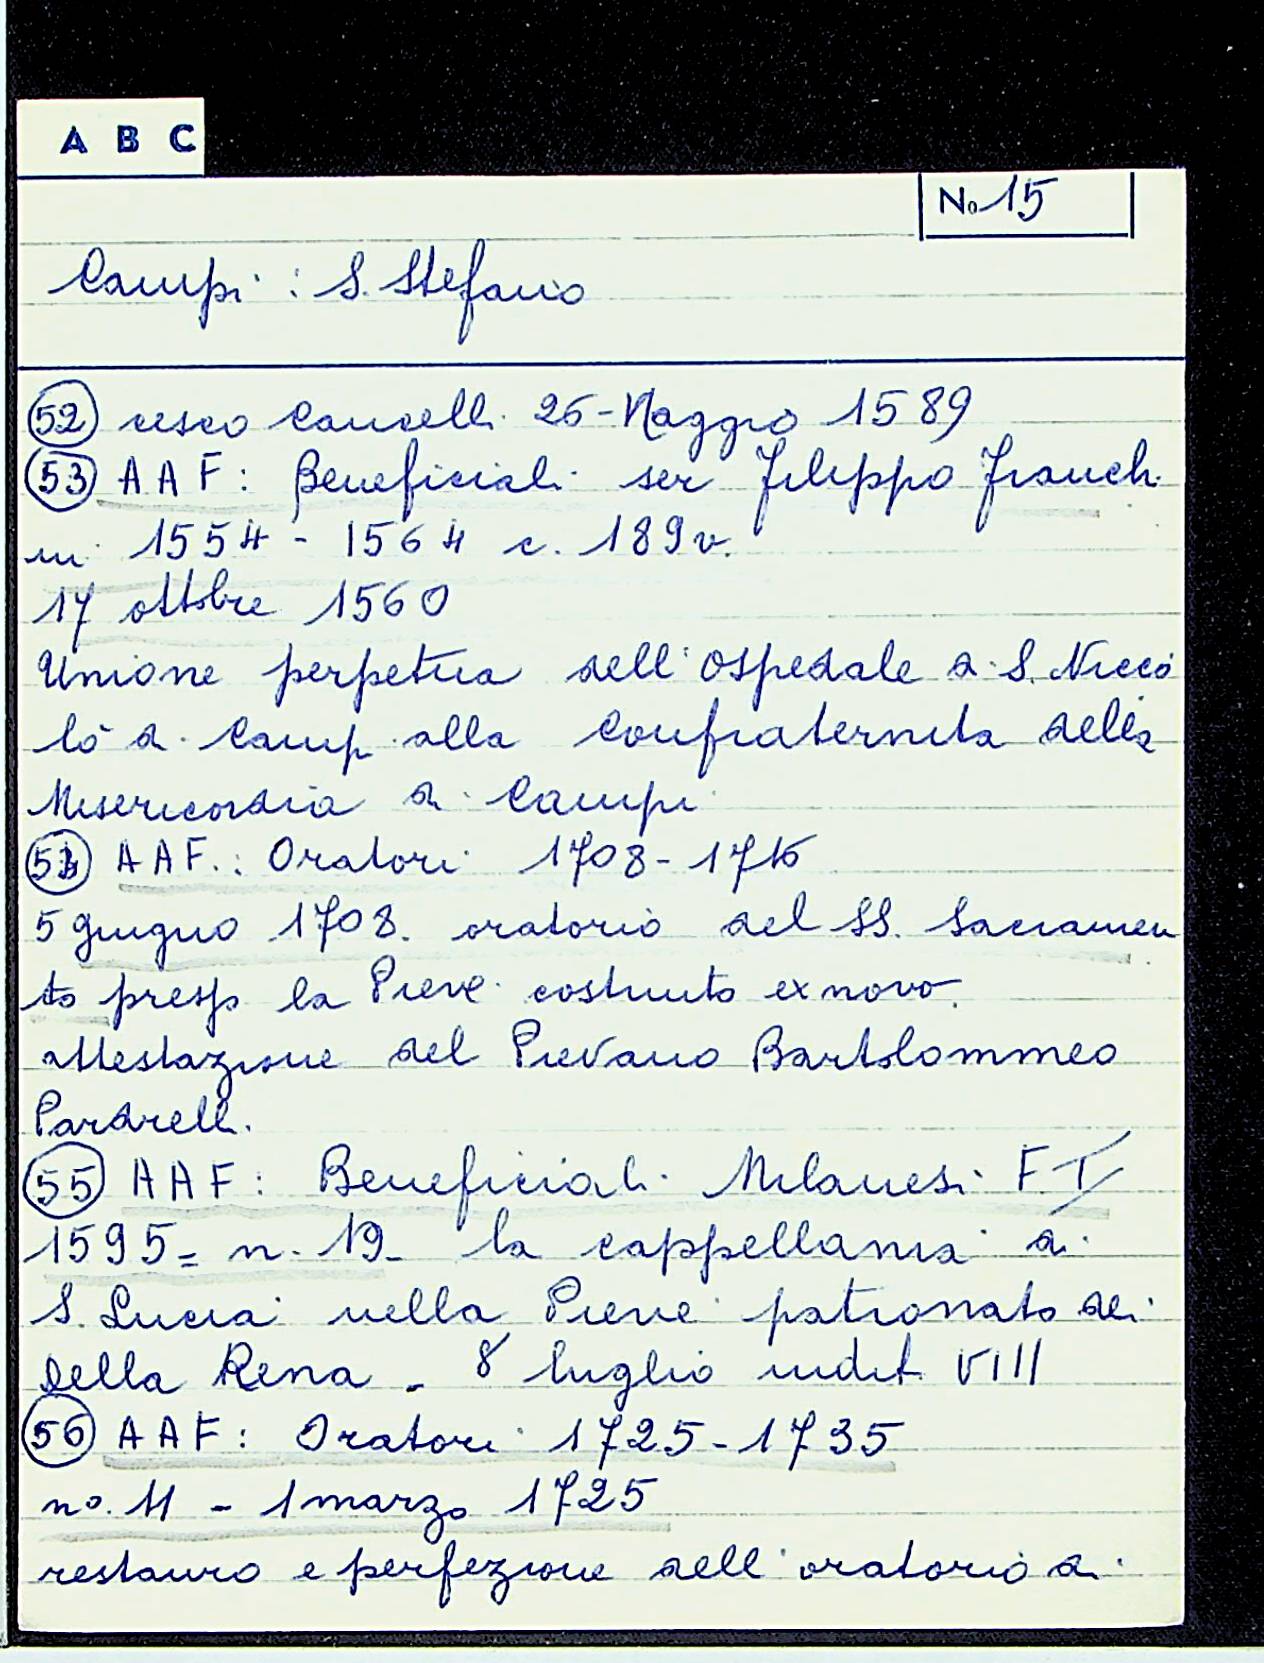 A B C
No 15
Campi: S. Stefano
52 cesco Cancelli 26-Maggio 1589
53 AAF: Beneficiali ser Filippo Franchi
ni 1554-1564 c. 189v.
17 ottobre 1560
Unione perpetua dell'Ospedale di S. Nicco
lò di Campi alla Confraternita della
Misericordia di Campi
54 AAF.: Oratori 1708-1716
5 giugno 1708. oratorio del SS. Sacramen
to presso la Pieve costruito ex novo.
attestazione del Pievano Bartolommeo
Pardrelli.
55 AAF: Beneficiali Milanesi F. I
1595= n. 19- la cappellania di
S. Lucia nella Pieve patronato dei
Della Rena - 8 luglio indit. VIII
56 AAF: Oratori 1725-1735
no. 11 - 1 marzo 1725
restauro e perfezione dell'oratorio di